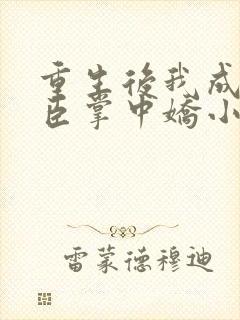 重生後我成
臣掌中嬌小
雷蒙德穆迪